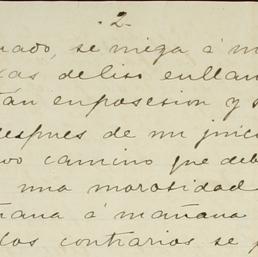 2.
nado, se niega á m
xas deliso enllan
tan enposesion y s
despues de un juic
vo camino que deb
una morosidad
ñana á mañana
los contrarios se p